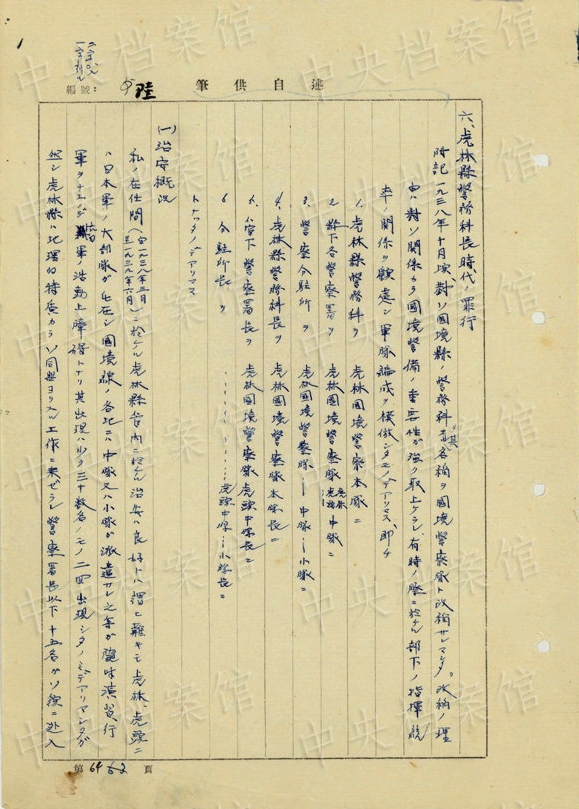 述自供筆
編號:
陸
六、虎林縣警務科長時代ノ罪行
附記 一九三八年十月頃、對ソ國境縣ノ警務科ハ其名稱ヲ國境警察隊ト改稱サレマシタ。改稱ノ理
由ハ對ソ關係カラ國境警備ノ重要性が強ク取上ケラレ、有時ノ際ニ於ケル部下ノ指揮統
率ノ關係ヲ觀慮シ軍隊編成ヲ模倣シタモノデアリマス、即チ
1. 虎林縣警務科ヲ 虎林國境警察本隊ニ
2. 縣下各警察署ヲ 虎林國境警察隊虎林虎頭中隊ニ
3. 警察分駐所ヲ 虎林國境警察隊…中隊…小隊ニ
4. 虎林縣警務科長ヲ 虎林國境警察隊本隊長ニ
5. 管下警察署長ヲ 虎林國境警察隊虎頭中隊長ニ
6 分駐所長ヲ 虎頭中隊…小隊長ニ
トナッタノデアリマス
(一)治安概況
私ノ在任間(自一九三八年二月至一九三九年六月)ニ於ケル虎林縣管內ニ於ケル治安ハ良好トハ謂ヒ難キモ虎林、虎頭ニ
ハ日本軍ノ大部隊が屯在シ國境線ノ各地ニハ中隊又ハ小隊が派遣サレ之等が隨時演習行
軍ヲナス為 軍ノ活動上障碍トナリ其出現ハ少ク三十數名ノモノ二回出現シタノミデアリマシタガ
然シ虎林縣ハ地理的特質カラソ同盟ヨリスル工作ニ乘ゼラレ警察署長以下十五名がソ領ニ赴入
第 64 62 頁
中央档案馆